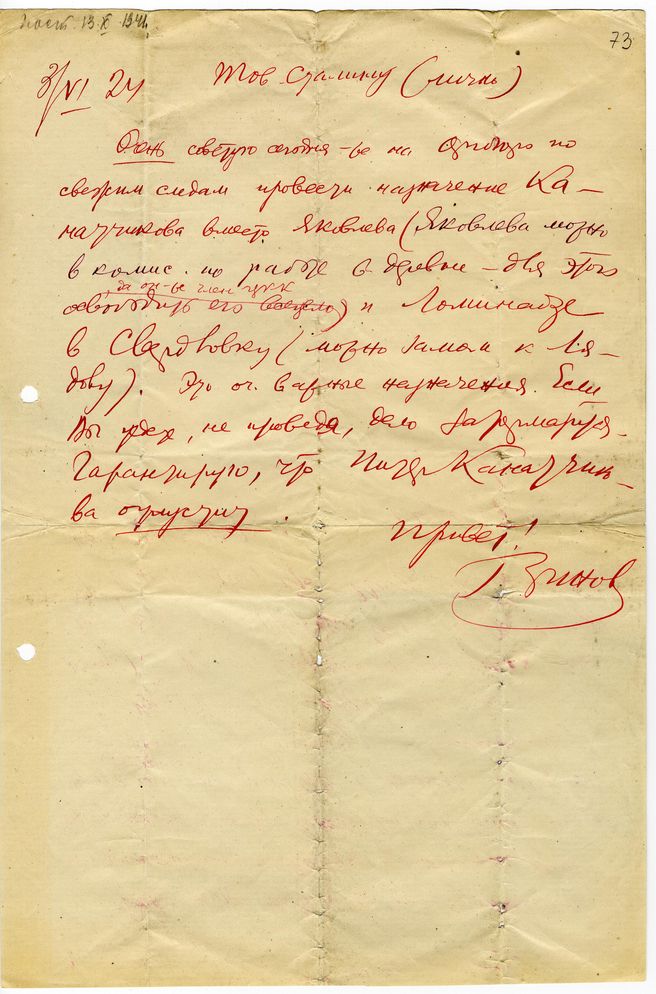 пост. 13.XI 1941
73
3/VI 24 Тов Сталину (лично)
Очень советую сегодня-же на по
свежим следам провести назначение Ка-
натчикова вместо Яковлева (Яковлева можно
в комис. по работе в деревне – для этого
да он-же член ЦКК
освободить его всецело) и Ломинадзе
в Свердловку (можно замом к Ля-
дову). Это оч. важные назначения. Если
Вы не проведете, дело
Гарантирую, что Питер Канатчик-
ва отпустит.
Привет!
Г. Зинов